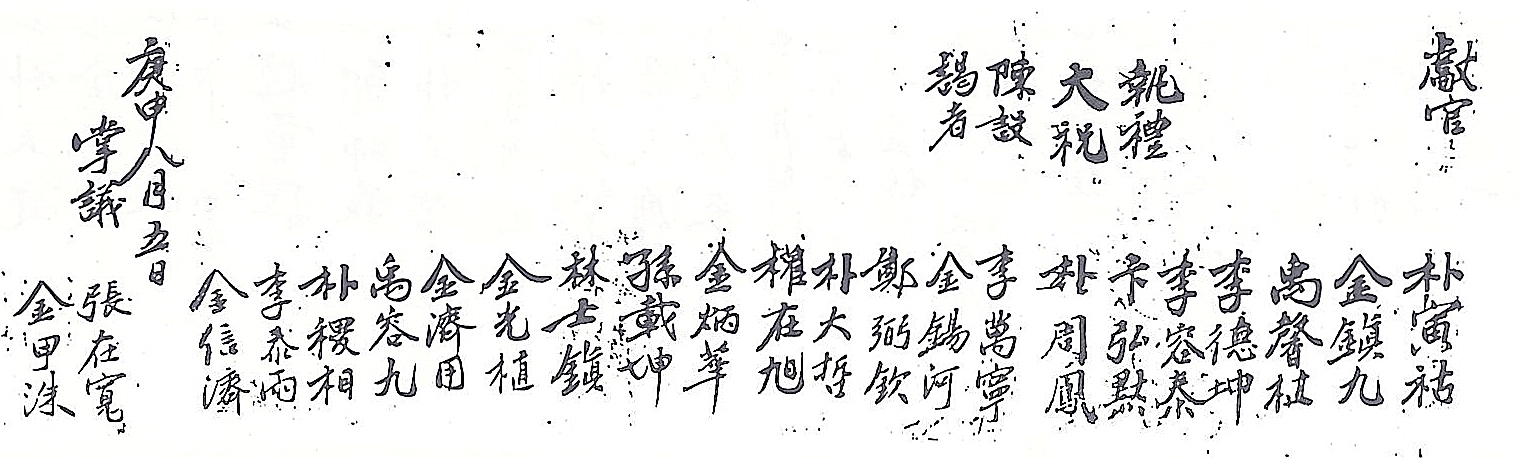 獻官 朴寅祜
金鎭九
禹馨杖
李德坤
執禮 李容泰
大祝 卞弘默
朴周鳳
陳設 李萬寧
謁者 金錫河
鄭弼欽
朴大哲
權在旭
金炳華
孫載坤
林士鎭
金光植
金濟用
禹容九
朴稷相
李泰雨
金信濟
庚申八月五日
掌議 張在寬
金甲洙